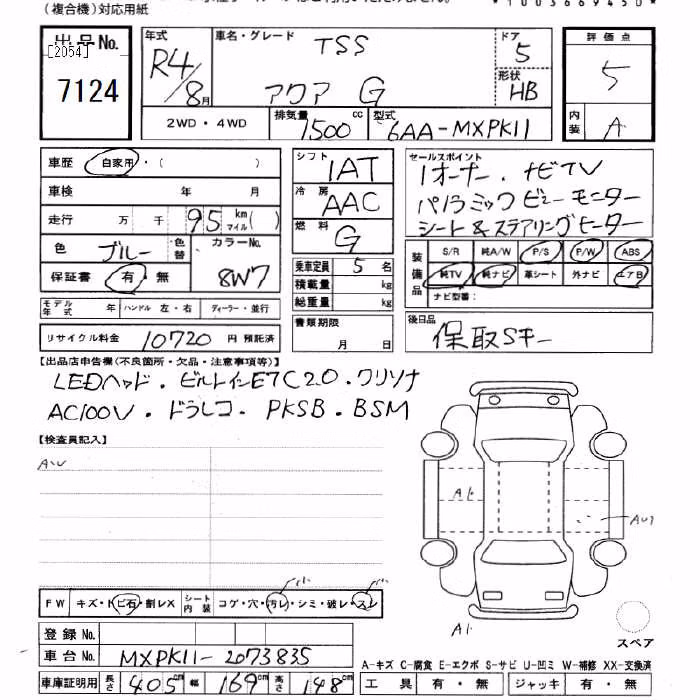 (複合機)対応用紙
出品No. [2054] 7124
年式 R4/8月
車名・グレード TSS アクア G
ドア 5
形状 HB
評価点 5
内装 A
2WD・4WD
排気量 1500 cc
型式 6AA-MXPK11
車歴 自家用・( )
車検 年 月
走行 万 千 95 km マイル( )
色 ブルー 色替 カラーNo. 8W7
保証書 有・無
シフト IAT
冷房 AAC
燃料 G
乗車定員 5 名
積載量 kg
総重量 kg
書類期限 月 日
セールスポイント
1オーナー.ナビTV
パノラミックビューモニター
シート&ステアリングヒーター
装備品 S/R 純A/W P/S P/W ABS
純TV 純ナビ 革シート 外ナビ エアB
ナビ型番:
モデル年式 年 ハンドル 左・右 ディーラー・並行
リサイクル料金 10720 円 預託済
後日品 保取Sキー
【出品店申告欄(不良箇所・欠品・注意事項等)】
LEDヘッド.ビルトインETC2.0.クリソナ
AC100V.ドラレコ.PKSB.BSM
【検査員記入】
A・U
A1
AU1
A1
FW キズ・トビ石・割レX シート内装 コゲ・穴・汚レ・シミ・破レ・スレ
小 小
スペア
登録No.
車台No. MXPK11-2073835
A-キズ C-腐食 E-エクボ S-サビ U-凹ミ W-補修 XX-交換済
車庫証明用 長さ 405cm 幅 169cm 高さ 148cm
工具 有・無 ジャッキ 有・無